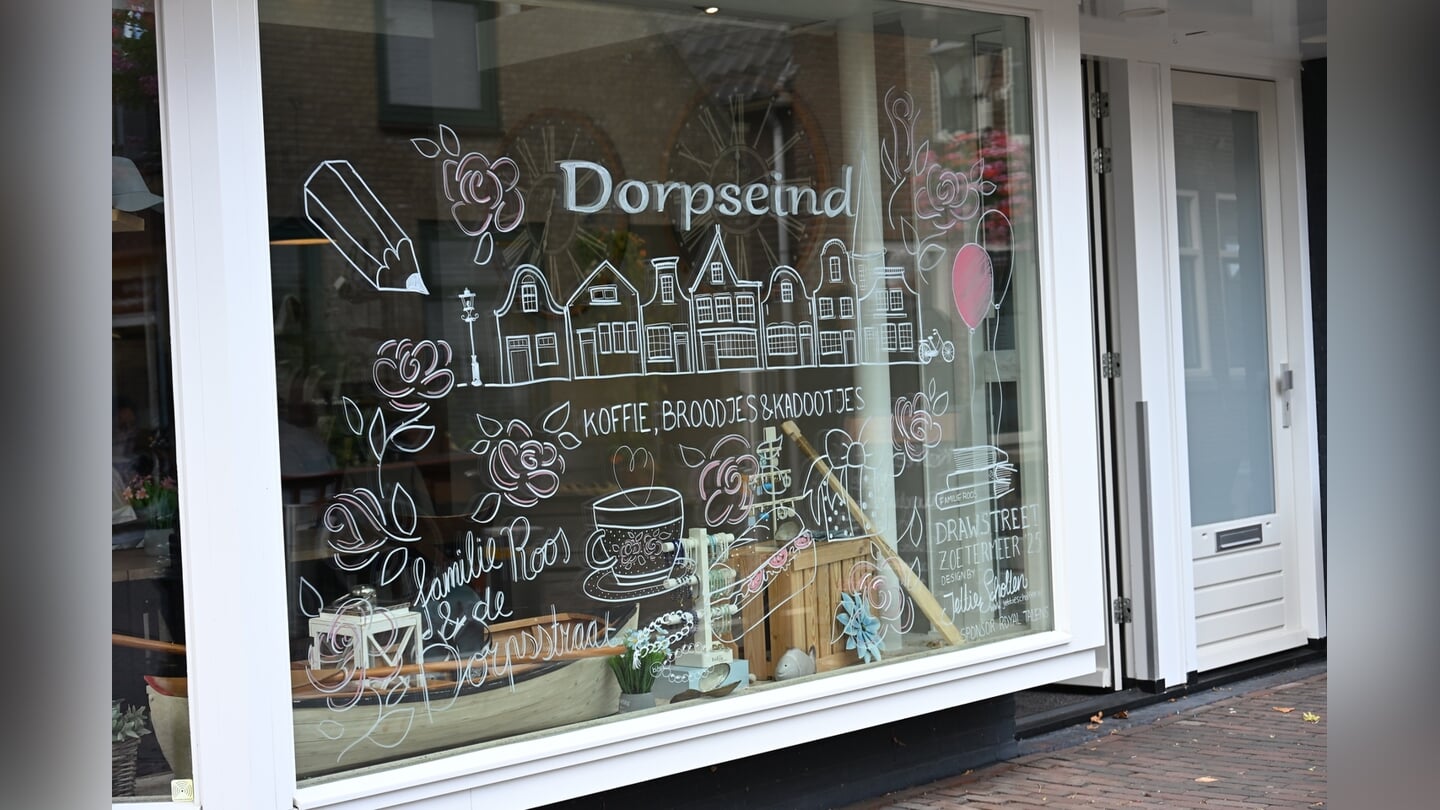 Dorpseind
KOFFIE, BROODJES & KADOOTJES
familie Roos
& de
Dorpsstraat
FAMILIE ROOS
DRAWSTREET
ZOETERMEER '25
DESIGN BY
Jeltje Scholten
SPONSOR ROYAL TALENS